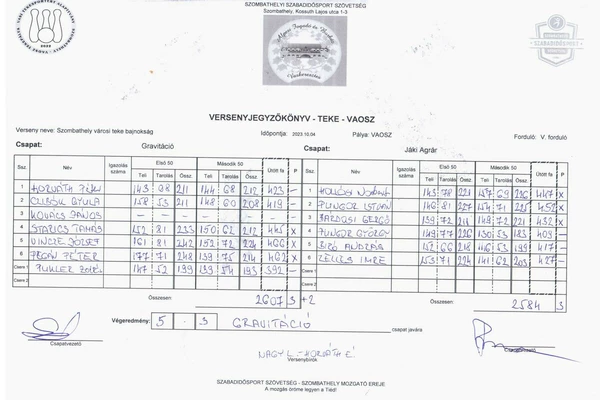 SZOMBATHELYI SZABADIDŐSPORT SZÖVETSÉG
Szombathely, Kossuth Lajos utca 1-3
SZABADIDŐSPORT
VERSENYJEGYZŐKÖNYV - TEKE - VAOSZ
Verseny neve: Szombathelyi városi teke bajnokság Időpontja: 2023.10.04 Pálya: VAOSZ Forduló: V. forduló
Csapat: Gravitáció Csapat: Jáki Agrár
Ssz. Név Igazolás száma Első 50 Második 50 Ütött fa P Ssz. Név Igazolás száma Első 50 Második 50 Ütött fa P
Teli Tarolás Össz. Teli Tarolás Össz. Teli Tarolás Össz. Teli Tarolás Össz.
1 HORVÁTH 143 68 211 144 68 212 423 - 1 143 78 221 157 69 226 447 X
2 CSBÖK GYULA 158 53 211 148 60 208 419 - 2 PUNGOR ISTVÁN 146 81 227 154 71 225 452 X
3 KOVÁCS JÁNOS - - - - - - - - 3 BÁRDOSI GERGŐ 139 72 211 149 72 221 432 X
4 TAMÁS 152 81 233 150 62 212 445 X 4 PUNGOR GYÖRGY 149 77 226 130 53 183 409 -
5 VINCZE JÓZSEF 161 81 242 152 72 224 466 X 5 BÍRÓ ANDRÁS 152 66 218 146 53 199 417 -
6 PÉTER 177 71 248 139 75 214 462 X 6 IMRE 153 71 224 141 62 203 427 -
Csere 1 147 52 199 139 54 193 392 - Csere 1
Csere 2 Csere 2
Összesen: 2607 3 +2 Összesen: 2584 3
Végeredmény: 5 . 3 GRAVITÁCIÓ csapat javára
Csapatvezető Csapatvezető
NAGY L. - HORVÁTH É.
Versenybírók
SZABADIDŐSPORT SZÖVETSÉG - SZOMBATHELY MOZGATÓ EREJE
A mozgás öröme legyen a Tiéd!